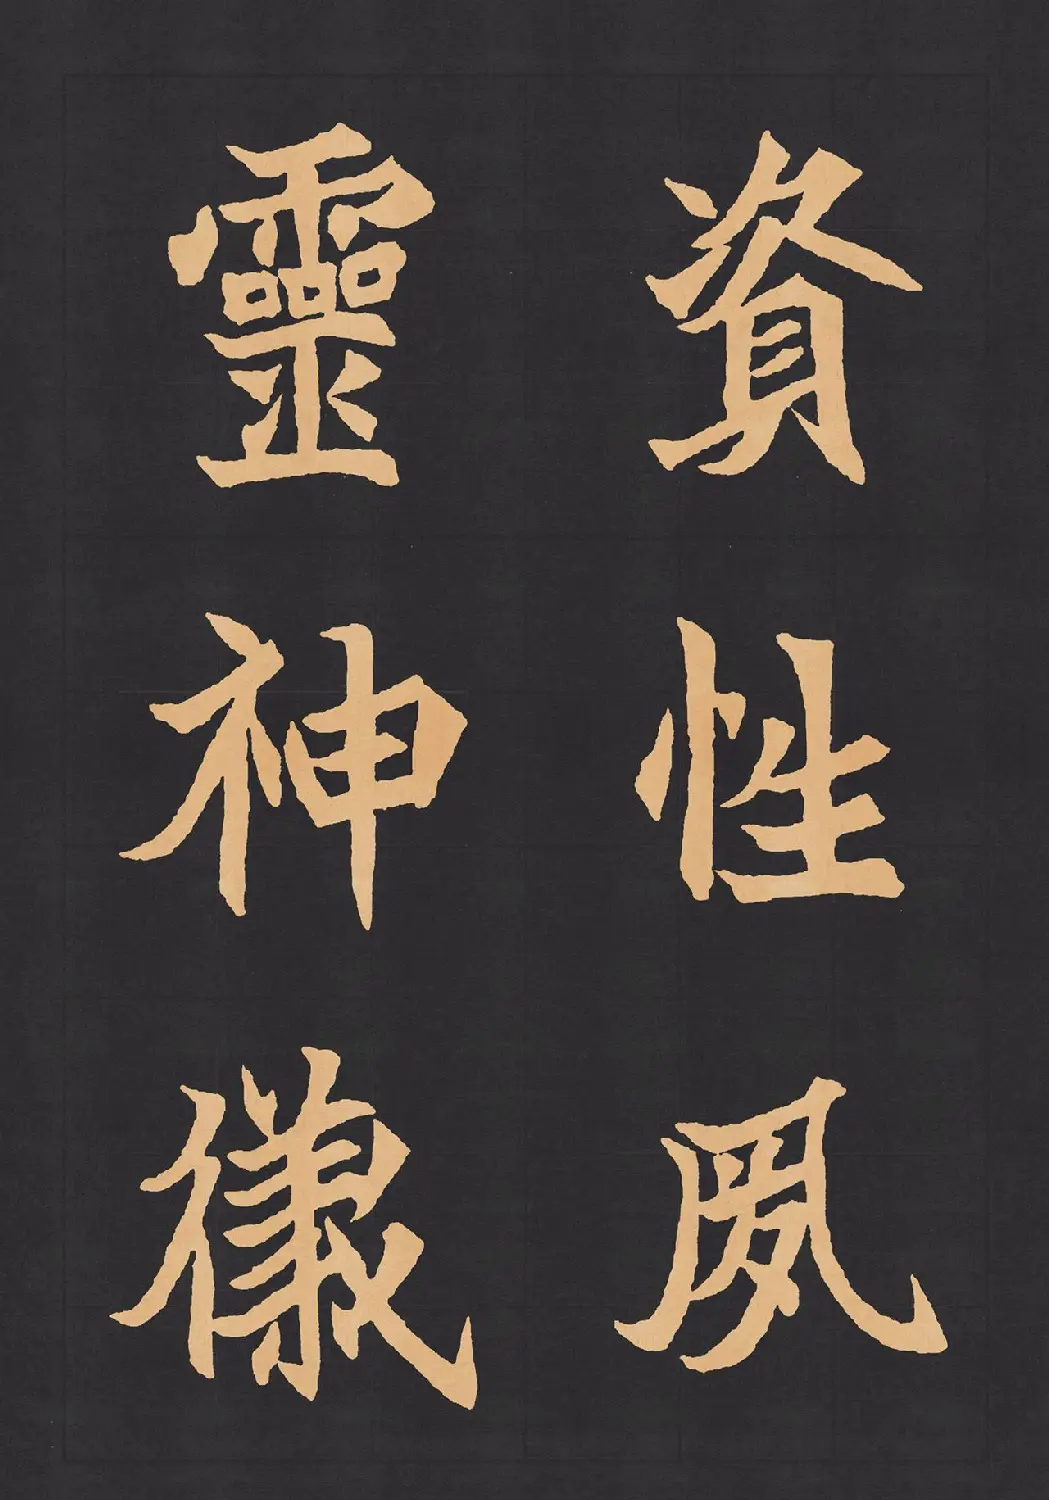 資性夙
靈神儀